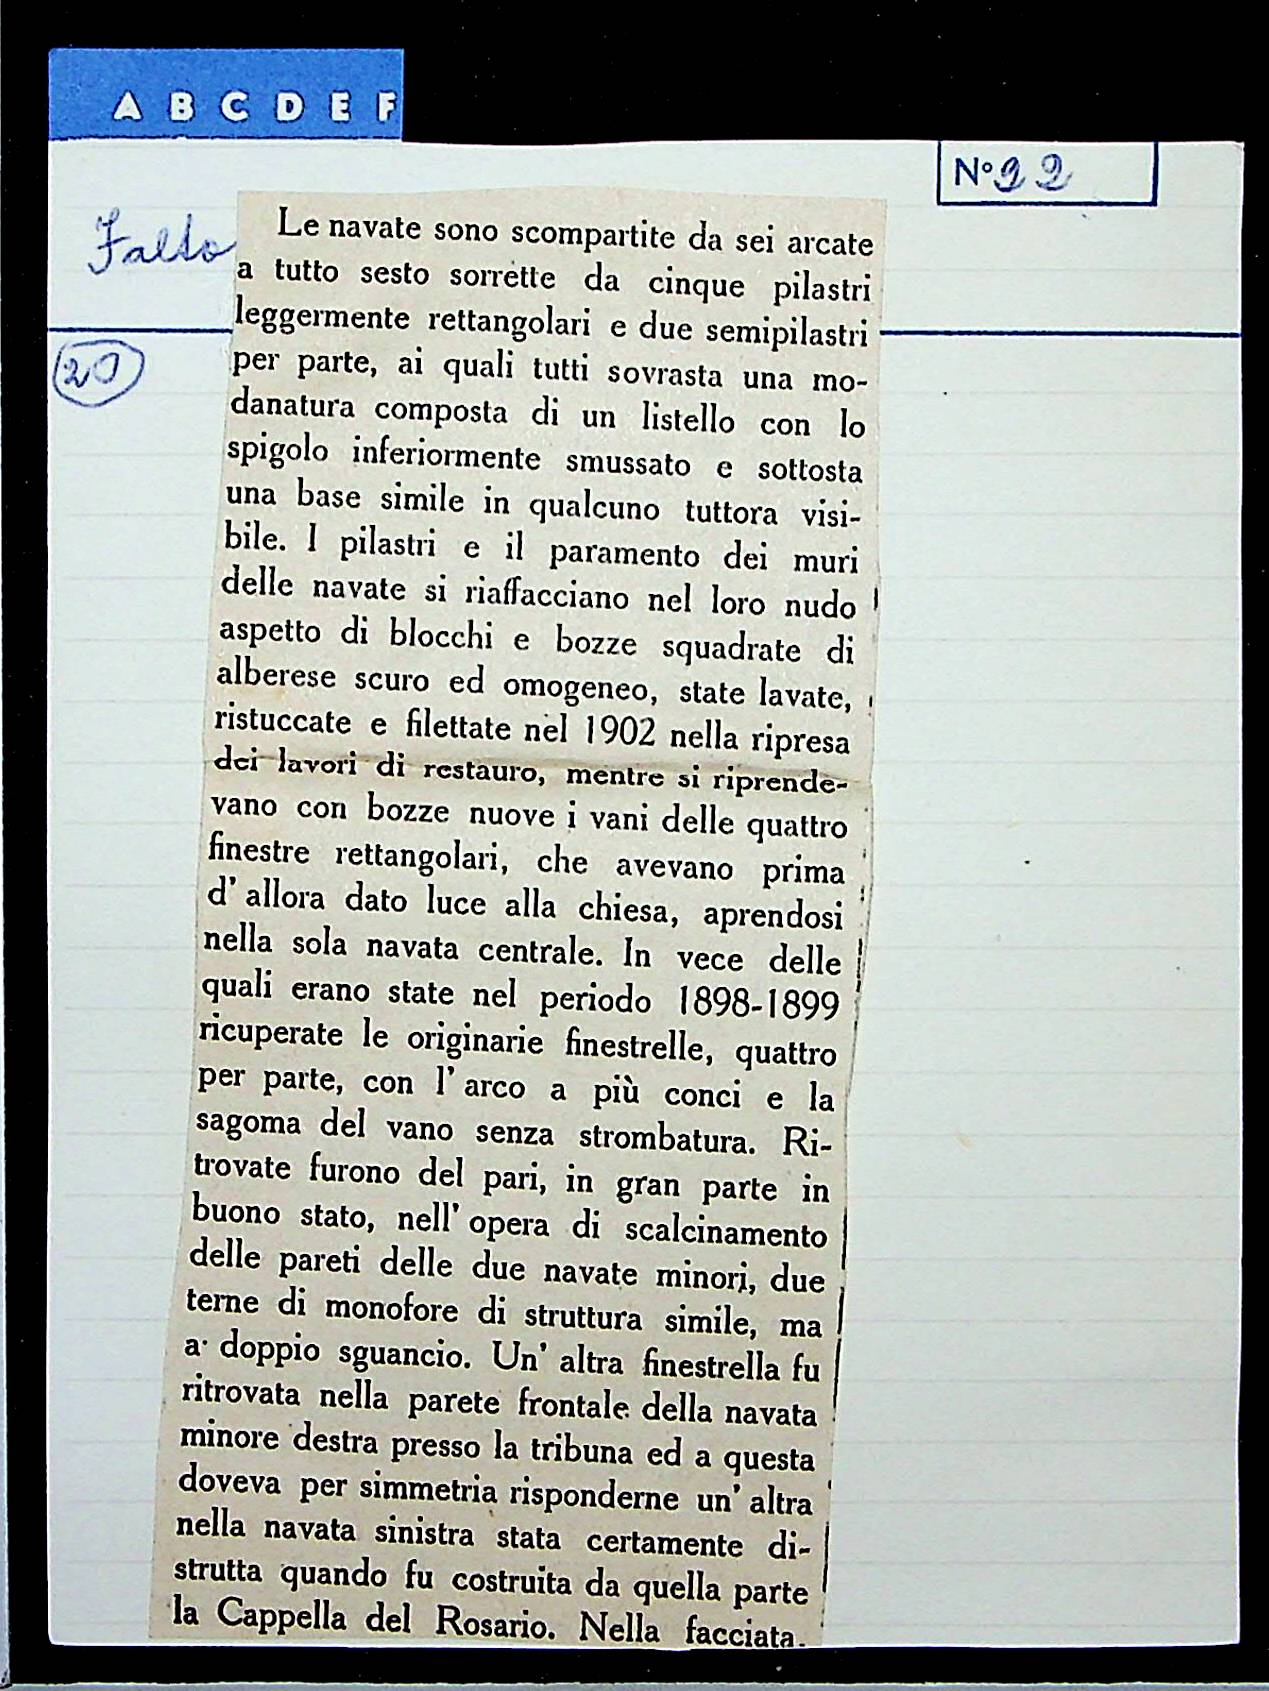 A B C D E F
Nº 22
Falto
20
Le navate sono scompartite da sei arcate
a tutto sesto sorrette da cinque pilastri
leggermente rettangolari e due semipilastri
per parte, ai quali tutti sovrasta una mo-
danatura composta di un listello con lo
spigolo inferiormente smussato e sottosta
una base simile in qualcuno tuttora visi-
bile. I pilastri e il paramento dei muri
delle navate si riaffacciano nel loro nudo
aspetto di blocchi e bozze squadrate di
alberese scuro ed omogeneo, state lavate,
ristuccate e filettate nel 1902 nella ripresa
dei lavori di restauro, mentre si riprende-
vano con bozze nuove i vani delle quattro
finestre rettangolari, che avevano prima
d' allora dato luce alla chiesa, aprendosi
nella sola navata centrale. In vece delle
quali erano state nel periodo 1898-1899
ricuperate le originarie finestrelle, quattro
per parte, con l' arco a più conci e la
sagoma del vano senza strombatura. Ri-
trovate furono del pari, in gran parte in
buono stato, nell' opera di scalcinamento
delle pareti delle due navate minori, due
terne di monofore di struttura simile, ma
a doppio sguancio. Un' altra finestrella fu
ritrovata nella parete frontale della navata
minore destra presso la tribuna ed a questa
doveva per simmetria risponderne un' altra
nella navata sinistra stata certamente di-
strutta quando fu costruita da quella parte
la Cappella del Rosario. Nella facciata.